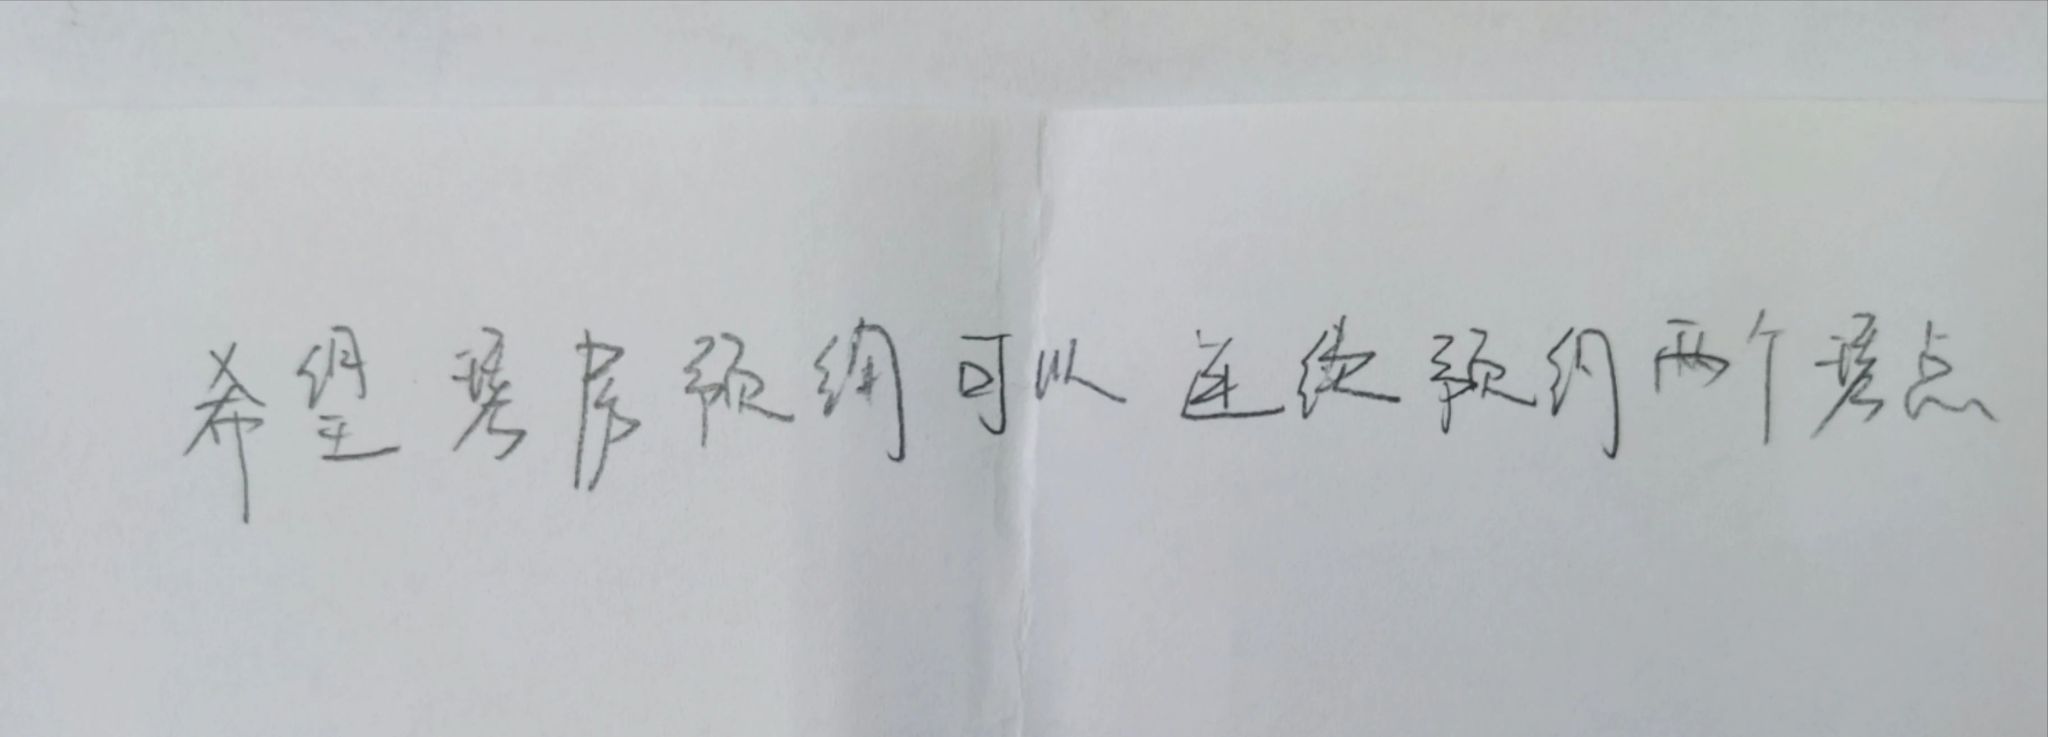 希望考序预约可以连续预约两个考点